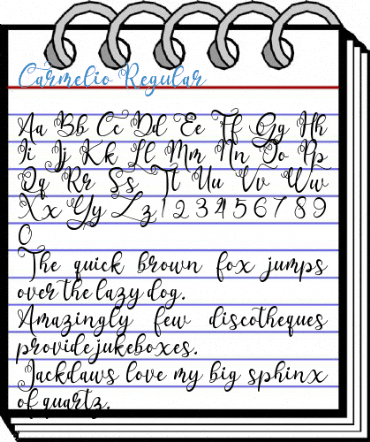 Carmelio Regular
Aa Bb Cc Dd Ee Ff Gg Hh
Ii Jj Kk Ll Mm Nn Oo Pp
Qq Rr Ss Tt Uu Vv Ww
Xx Yy Zz 1 2 3 4 5 6 7 8 9
0
The quick brown fox jumps
over the lazy dog.
Amazingly few discotheques
provide jukeboxes.
Jackdaws love my big sphinx
of quartz.